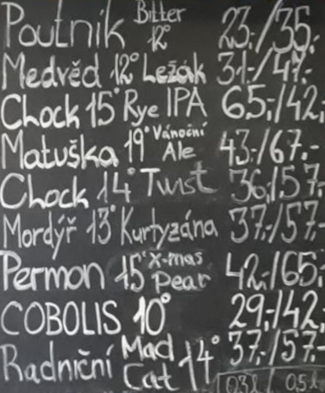 Poutník Bitter 12° 23,-/35,-
Medvěd 12° Ležák 31,-/47,-
Chock 15° Rye IPA 65,-/42,
Matuška 19° Vánoční Ale 43,-/67,-
Chock 14° Twist 36,-/57,-
Mordýř 13° Kurtyzána 37,-/57,-
Permon 15° X-mas Pear 42,-/65,-
COBOLIS 10° 29,-/42,-
Radniční Mad Cat 14° 37,-/57,-
0,3l 0,5l